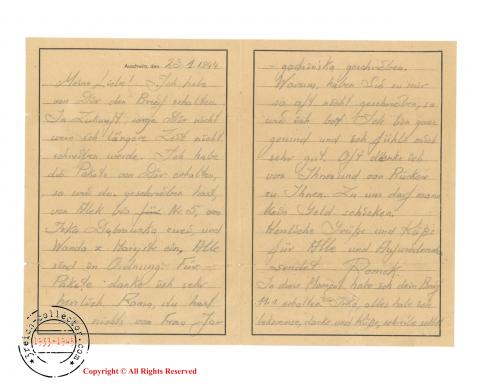 Auschwitz, den 23.1.1944
Meine Liebe! Ich habe
von Dir den Brief erhalten
In Zukunft sorge Dir nicht
wenn ich längere Zeit nicht
schreiben werde. Ich habe
die Pakete von Dir erhalten,
so wie du geschrieben hast,
von Alek bis für Nr. 5, von
Irka Dąbrowska zwei, und
Wanda z ein, Alle
sind in Ordnung. Für
Pakete danke ich sehr
herzlich Romo, du hast
nichts von Frau Jar
geschrieben.
Warum, haben Sie zu mir
so oft nicht geschrieben, so
wie ich bat. Ich bin ganz
gesund und ich fühle mich
sehr gut. Oft denke ich
von Ihnen und von
zu Ihnen. Zu uns darf man
kein Geld schicken.
Herzliche Grüße und Küße
für Alle und
sendet Romek.
In dem Moment habe ich dein Brief
erhalten alles habe
bekommen, danke und Küße, schreibe
streich-collector.com
1933-1945
Copyright © All Rights Reserved